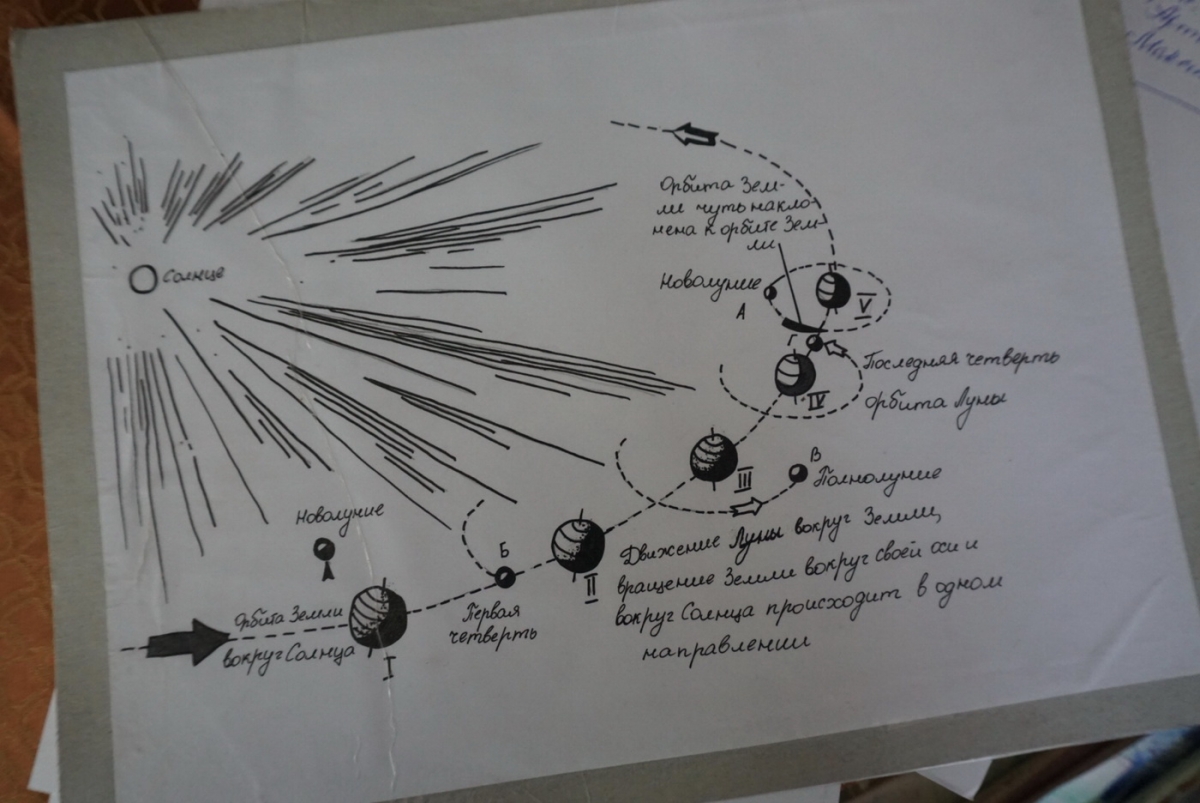 Солнце
Орбита Зем-
ли чуть накло-
нена к орбите Зем-
ли
Новолуние
А
V
Последняя четверть
IV
Орбита Луны
В
III
Полнолуние
Новолуние
Б
II
Движение Луны вокруг Земли,
вращение Земли вокруг своей оси и
вокруг Солнца происходит в одном
направлении
Орбита Земли
вокруг Солнца
I
Первая
четверть